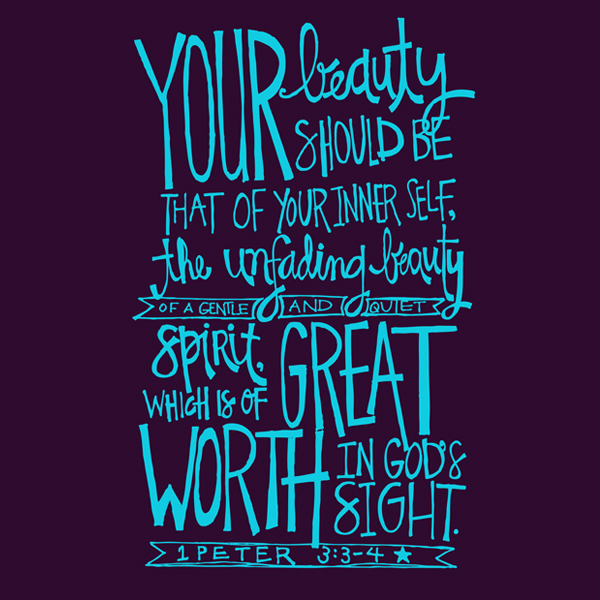 YOUR beauty
SHOULD BE
THAT OF YOUR INNER SELF,
the unfading beauty
OF A GENTLE AND QUIET
spirit, GREAT
WHICH IS OF
WORTH IN GOD'S
SIGHT.
1 PETER 3:3-4